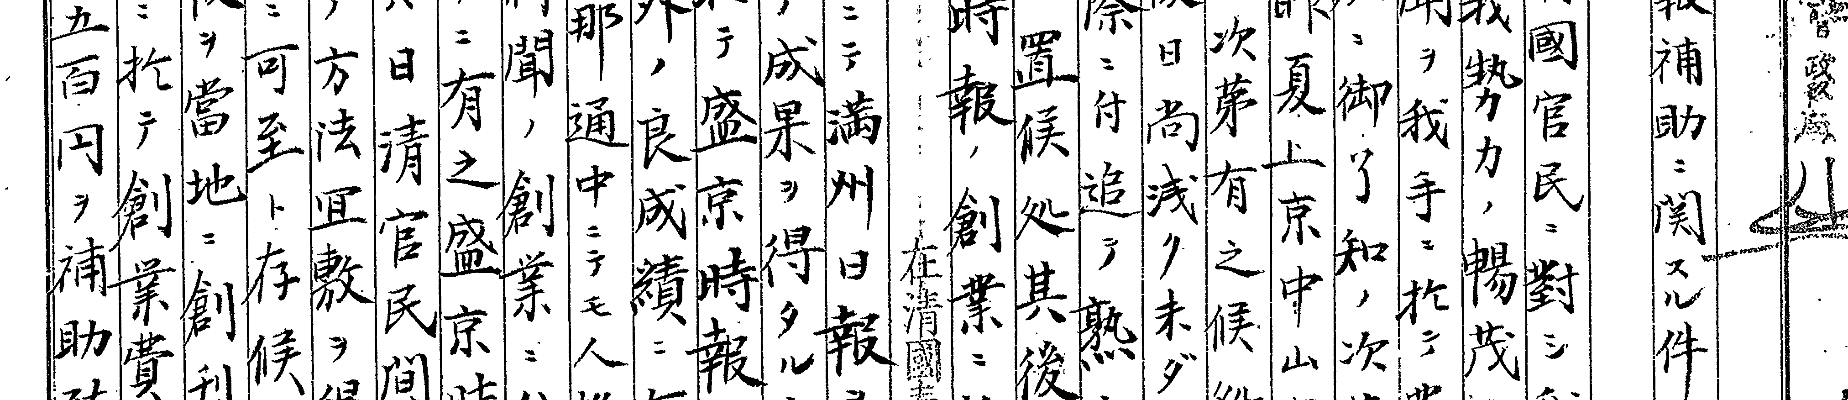 報補助ニ関スル件
國官民ニ對シ
我勢力カ、暢茂
聞ヲ我手ニ於テ
ニ御了知、次
昨夏上京中山
次第有之候
日尚浅ク未ダ
際ニ付追テ熟
置候処其後
時報、創業ニ
在清國
ニテ満州日報
成果ヲ得タル
テ盛京時報
外、良成績ニ
那通中ニテモ人
聞、創業ニ
ニ有之盛京時
日清官民間
方法宜敷ヲ得
ニ可至ト存候
ヲ當地ニ創刊
ニ於テ創業費
五百円ヲ補助